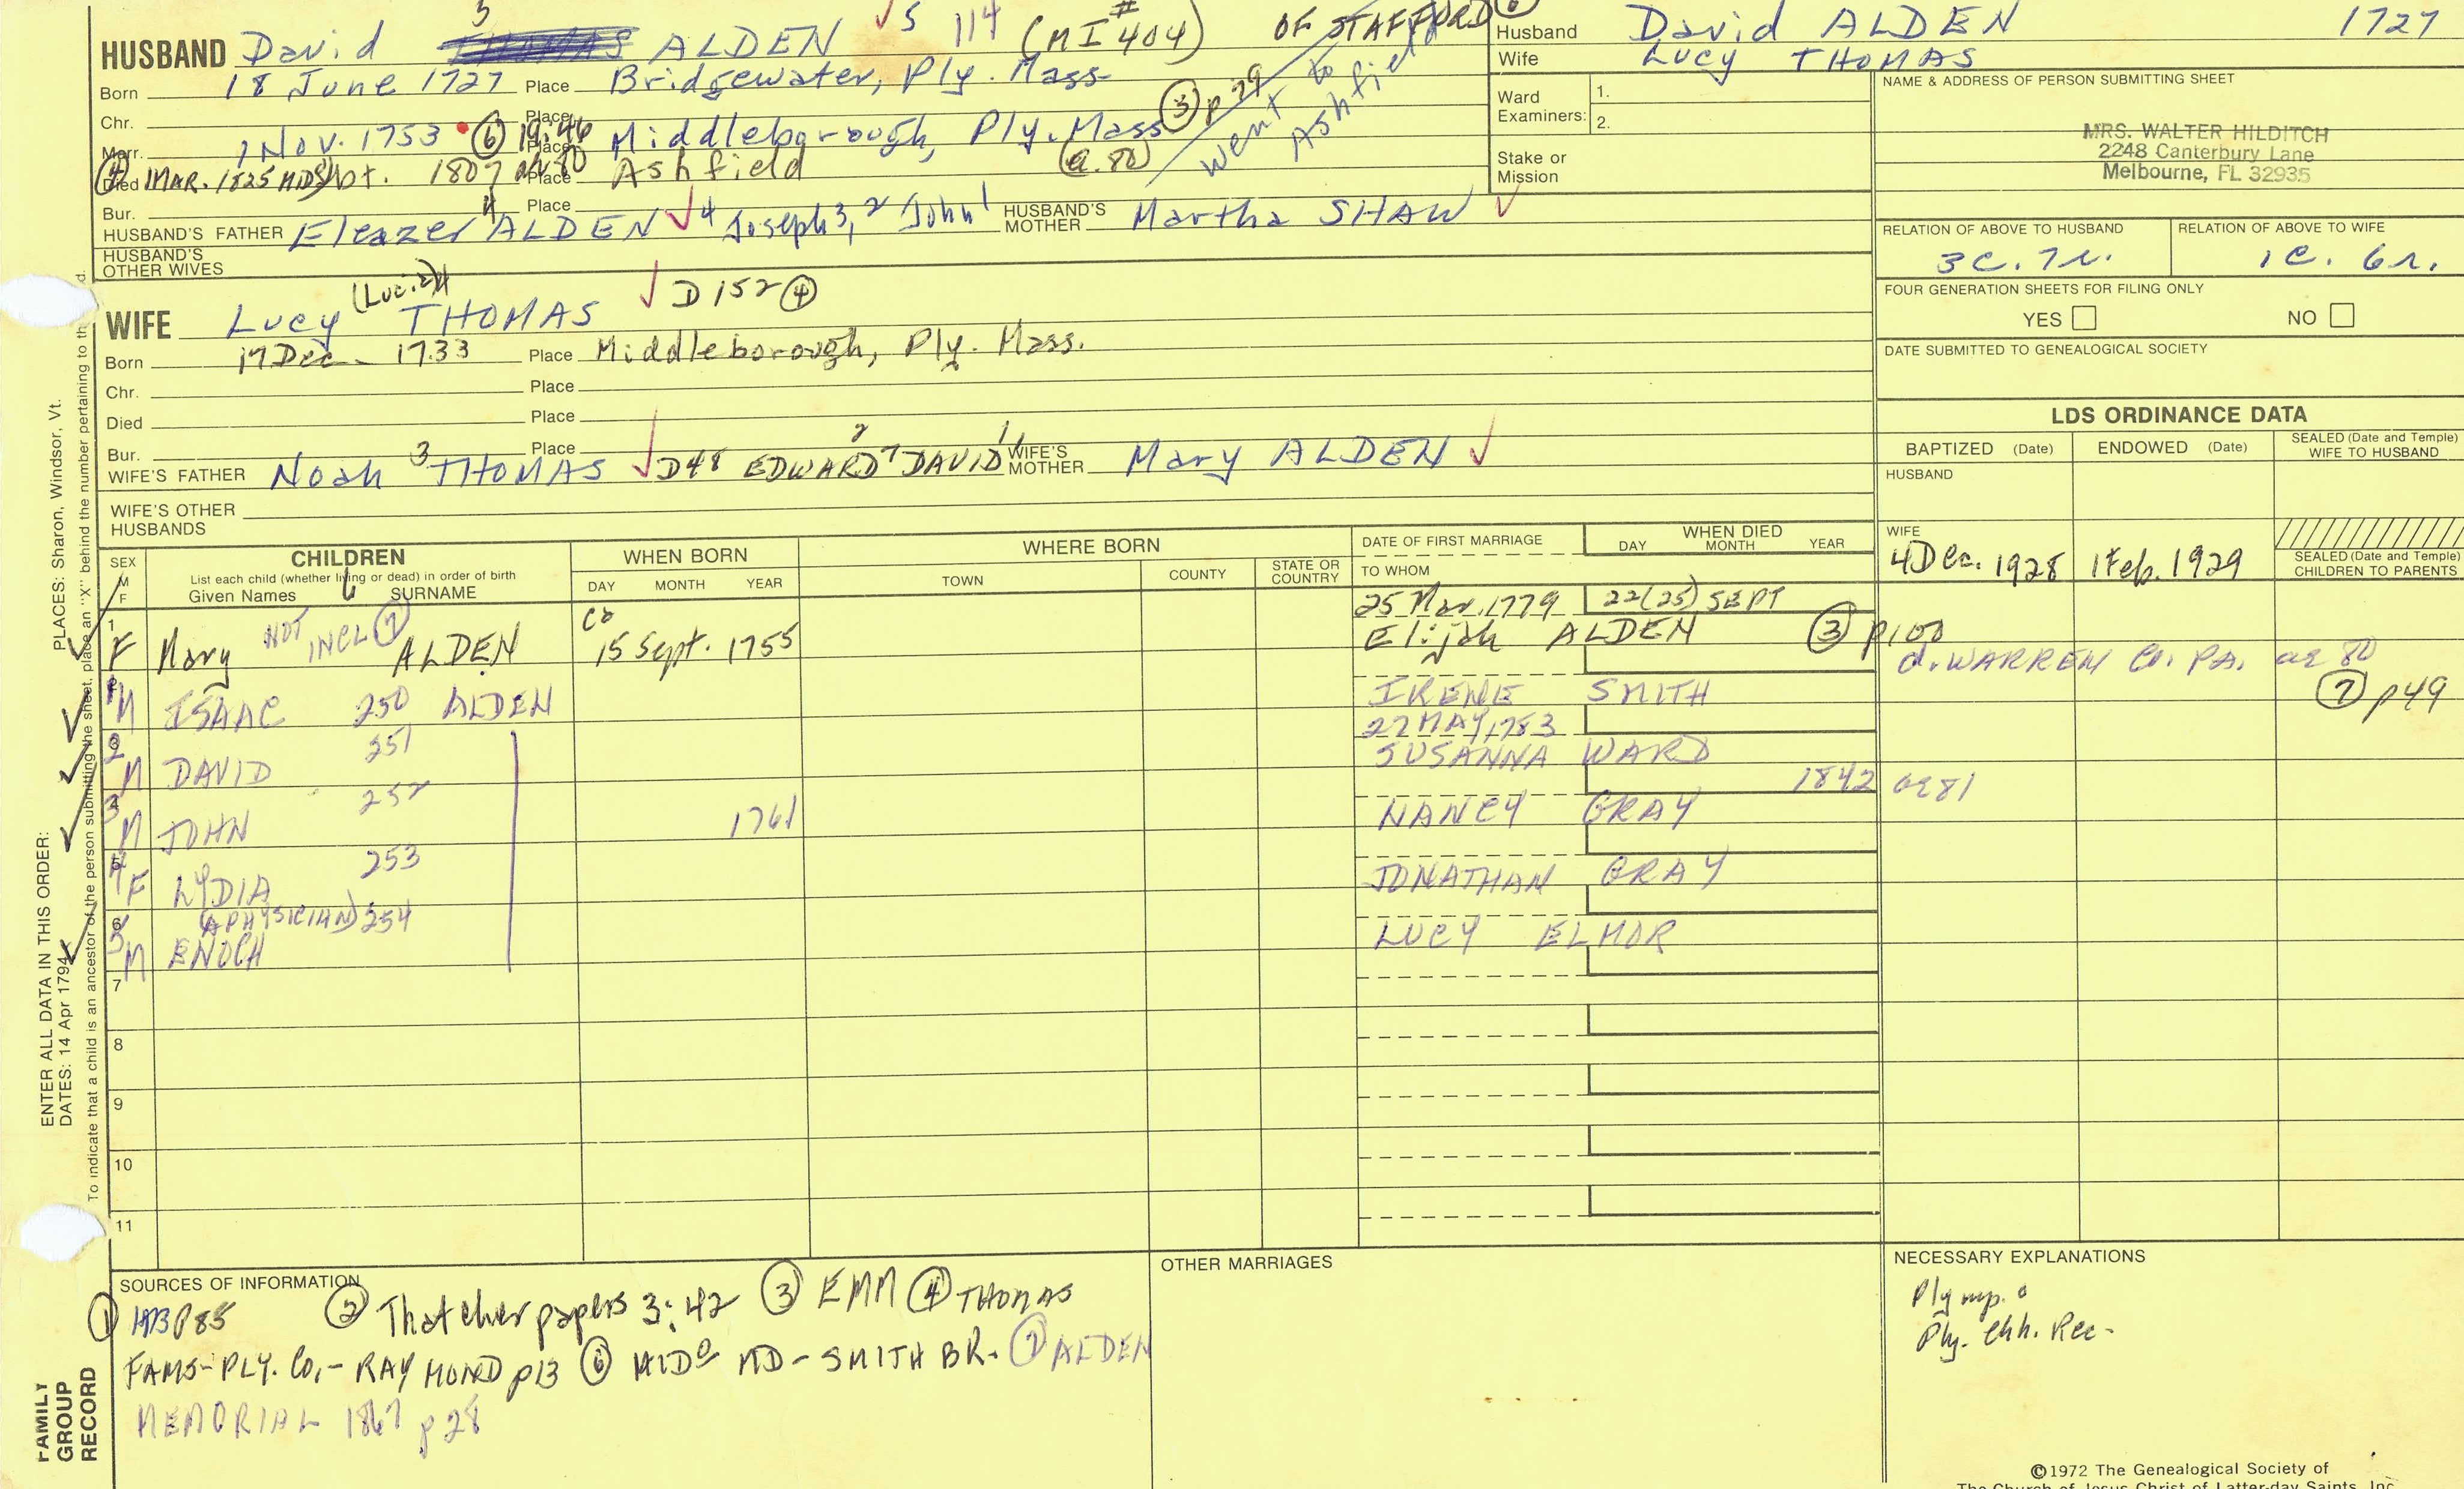 HUSBAND David 5 ALDEN √ S 114 (MI #404) OF STAFFORD
Born 18 June 1727 Place Bridgewater, Ply. Mass
Chr. Place
Marr. 1 Nov. 1753 ⑥ 19:46 Place Middleborough, Ply. Mass ③ p 29
went to Ashfield
④ Died 1 MAR. 1825 Place Ashfield (a. 80)
1807
Bur. Place
HUSBAND'S FATHER Eleazer 4 ALDEN √ 4 Joseph 3, 2 John 1 HUSBAND'S MOTHER Martha SHAW √
HUSBAND'S OTHER WIVES
Husband David ALDEN 1727
Wife Lucy THOMAS
Ward Examiners: 1.
2.
Stake or Mission
NAME & ADDRESS OF PERSON SUBMITTING SHEET
MRS. WALTER HILDITCH
2248 Canterbury Lane
Melbourne, FL 32935
RELATION OF ABOVE TO HUSBAND RELATION OF ABOVE TO WIFE
3C. 7r. 1C. 6r.
FOUR GENERATION SHEETS FOR FILING ONLY
YES NO
DATE SUBMITTED TO GENEALOGICAL SOCIETY
WIFE Lucy THOMAS √ D152 ④
Born 17 Dec. 1733 Place Middleborough, Ply. Mass.
Chr. Place
Died Place
Bur. Place
WIFE'S FATHER Noah 3 THOMAS √ D48 EDWARD 2 DAVID 1 WIFE'S MOTHER Mary ALDEN √
WIFE'S OTHER HUSBANDS
LDS ORDINANCE DATA
BAPTIZED (Date) ENDOWED (Date) SEALED (Date and Temple) WIFE TO HUSBAND
HUSBAND
WIFE 4 Dec. 1928 1 Feb. 1929
SEALED (Date and Temple) CHILDREN TO PARENTS
SEX M F CHILDREN WHEN BORN WHERE BORN DATE OF FIRST MARRIAGE WHEN DIED
List each child (whether living or dead) in order of birth
Given Names 6 SURNAME DAY MONTH YEAR TOWN COUNTY STATE OR COUNTRY TO WHOM DAY MONTH YEAR
25 Mar. 1779 22 (25) SEPT
1 F Mary NOT INCL ⑦ ALDEN 15 Sept. 1755 Elijah ALDEN ③ p100
d. WARREN Co. PA. ae 80
⑦ p49
M ISAAC 250 ALDEN IRENE SMITH
27 MAY, 1783
M DAVID 251 SUSANNA WARD
M JOHN 252 1761 NANCY GRAY 1842 ae 81
F LYDIA 253 JONATHAN GRAY
6 M ENOCH (A PHYSICIAN) 254 LUCY ELMOR
7
8
9
10
11
SOURCES OF INFORMATION
② Thatcher papers 3:42 ③ EMM ④ THOMAS
FAMS - PLY. Co. - RAYMOND p13 ⑥ MD - SMITH BR. ⑦ ALDEN
MEMORIAL 1867 p 28
OTHER MARRIAGES
NECESSARY EXPLANATIONS
Ply. Chh. Rec.
©1972 The Genealogical Society of
The Church of Jesus Christ of Latter-day Saints, Inc.
ENTER ALL DATA IN THIS ORDER:
DATES: 14 Apr 1794
PLACES: Sharon, Windsor, Vt.
To indicate that a child is an ancestor of the person submitting the sheet, place an "X" behind the number pertaining to th d.
FAMILY GROUP RECORD